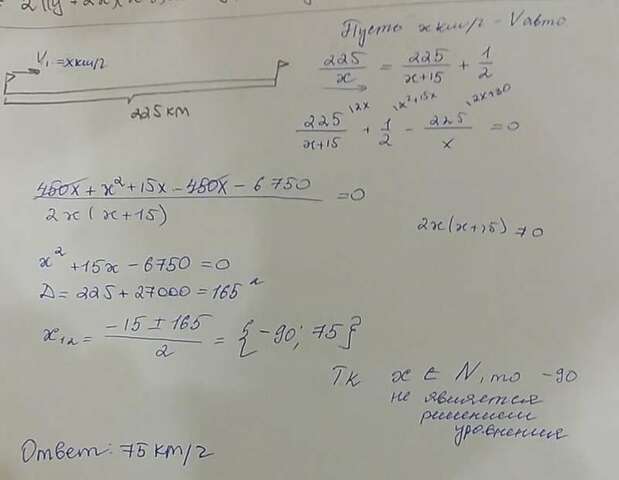 Пусть x км/г - V авто
V₁ = x км/г
225 км
225/x = 225/(x+15) + 1/2
225/(x+15) \2x + 1/2 \x²+15x - 225/x \2x+30 = 0
(450x + x² + 15x - 450x - 6750)/(2x(x+15)) = 0
2x(x+15) ≠ 0
x² + 15x - 6750 = 0
D = 225 + 27000 = 165²
x₁₂ = (-15 ± 165)/2 = {-90; 75}
Тк x ∈ N, то -90
не является
решением
уравнения
Ответ: 75 км/г